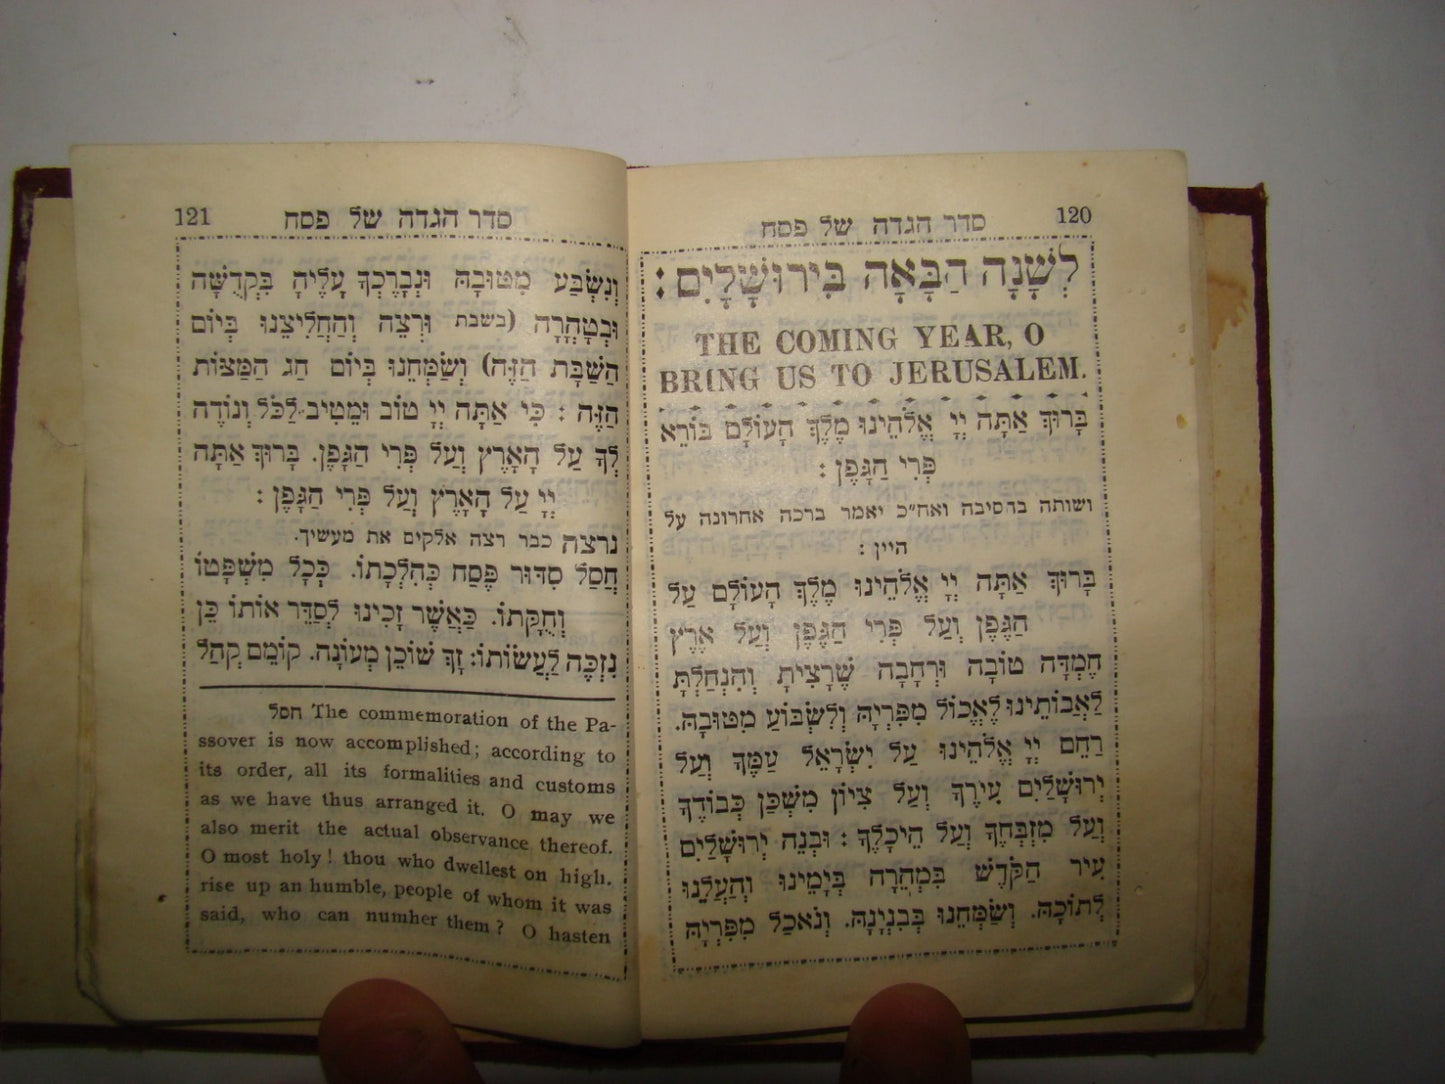 120 סדר הגדה של פסח
לְשָׁנָה הַבָּאָה בִּירוּשָׁלָיִם:
THE COMING YEAR, O
BRING US TO JERUSALEM.
בָּרוּךְ אַתָּה יְיָ אֱלֹהֵינוּ מֶלֶךְ הָעוֹלָם בּוֹרֵא
פְּרִי הַגָּפֶן:
ושותה בהסיבה ואח״כ יאמר ברכה אחרונה על
היין:
בָּרוּךְ אַתָּה יְיָ אֱלֹהֵינוּ מֶלֶךְ הָעוֹלָם עַל
הַגֶּפֶן וְעַל פְּרִי הַגֶּפֶן וְעַל אֶרֶץ
חֶמְדָּה טוֹבָה וּרְחָבָה שֶׁרָצִיתָ וְהִנְחַלְתָּ
לַאֲבוֹתֵינוּ לֶאֱכוֹל מִפִּרְיָהּ וְלִשְׂבּוֹעַ מִטּוּבָהּ.
רַחֵם יְיָ אֱלֹהֵינוּ עַל יִשְׂרָאֵל עַמֶּךָ וְעַל
יְרוּשָׁלַיִם עִירֶךָ וְעַל צִיּוֹן מִשְׁכַּן כְּבוֹדֶךָ
וְעַל מִזְבְּחֶךָ וְעַל הֵיכָלֶךָ: וּבְנֵה יְרוּשָׁלַיִם
עִיר הַקֹּדֶשׁ בִּמְהֵרָה בְיָמֵינוּ וְהַעֲלֵנוּ
לְתוֹכָהּ. וְשַׂמְּחֵנוּ בְּבִנְיָנָהּ. וְנֹאכַל מִפִּרְיָהּ
121 סדר הגדה של פסח
וְנִשְׂבַּע מִטּוּבָהּ וּנְבָרֶכְךָ עָלֶיהָ בִּקְדֻשָּׁה
וּבְטָהֳרָה (בשבת וּרְצֵה וְהַחֲלִיצֵנוּ בְּיוֹם
הַשַּׁבָּת הַזֶּה) וְשַׂמְּחֵנוּ בְּיוֹם חַג הַמַּצּוֹת
הַזֶּה: כִּי אַתָּה יְיָ טוֹב וּמֵטִיב לַכֹּל וְנוֹדֶה
לְךָ עַל הָאָרֶץ וְעַל פְּרִי הַגָּפֶן. בָּרוּךְ אַתָּה
יְיָ עַל הָאָרֶץ וְעַל פְּרִי הַגָּפֶן:
נרצה כבר רצה אלקים את מעשיך.
חֲסַל סִדּוּר פֶּסַח כְּהִלְכָתוֹ. כְּכָל מִשְׁפָּטוֹ
וְחֻקָּתוֹ. כַּאֲשֶׁר זָכִינוּ לְסַדֵּר אוֹתוֹ כֵּן
נִזְכֶּה לַעֲשׂוֹתוֹ: זָךְ שׁוֹכֵן מְעוֹנָה. קוֹמֵם קְהַל
חסל The commemoration of the Pa-
ssover is now accomplished; according to
its order, all its formalities and customs
as we have thus arranged it. O may we
also merit the actual observance thereof.
O most holy! thou who dwellest on high.
rise up an humble, people of whom it was
said, who can numher them? O hasten